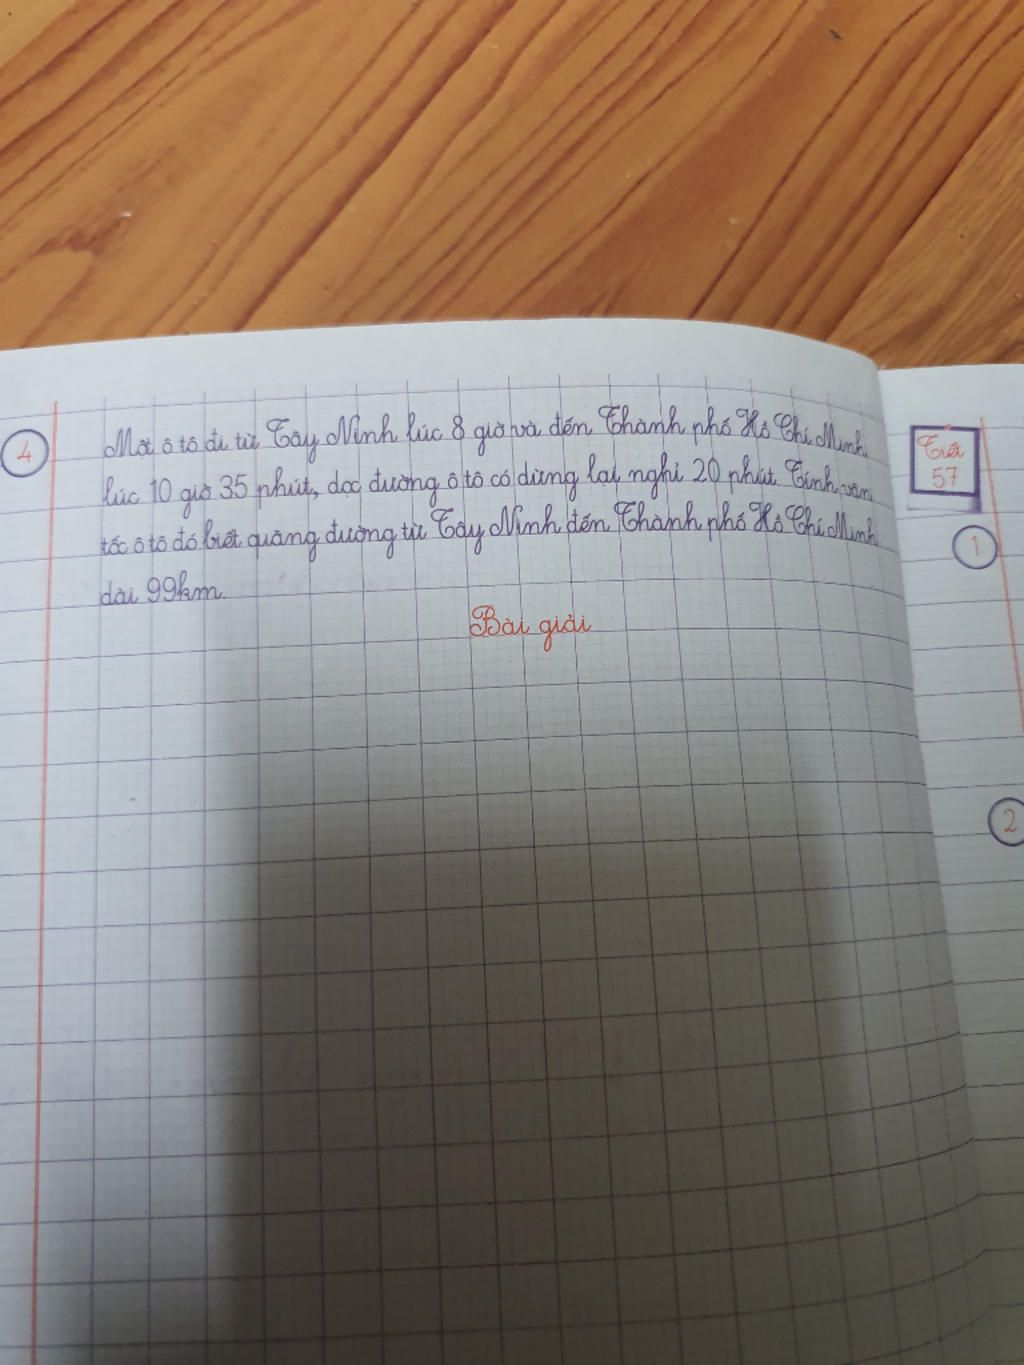 4
Một ô tô đi từ Tây Ninh lúc 8 giờ và đến Thành phố Hồ Chí Minh
lúc 10 giờ 35 phút, dọc đường ô tô có dừng lại nghỉ 20 phút. Tính vận
tốc ô tô đó biết quãng đường từ Tây Ninh đến Thành phố Hồ Chí Minh
dài 99km.
Bài giải
Tiết
57
1
2